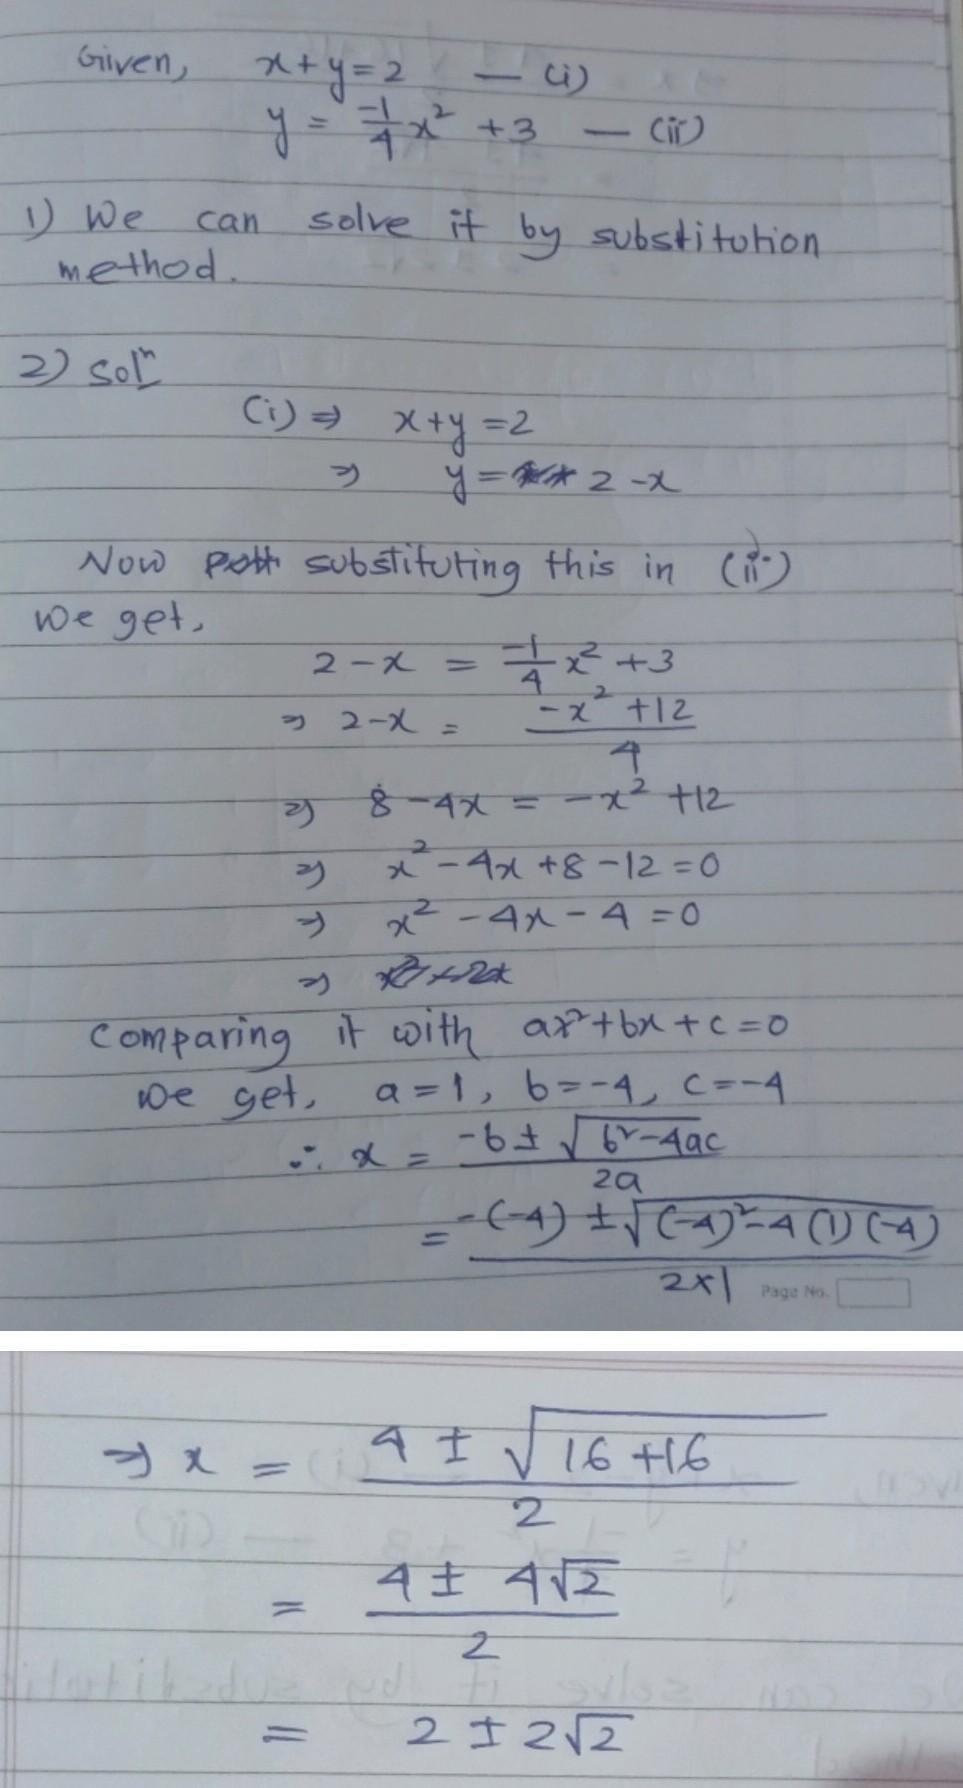 Given, x+y=2 — (i)
y = -1/4 x² +3 — (ii)
1) We can solve it by substitution
method.
2) solⁿ
(i) ⇒ x+y=2
⇒ y= 2-x
Now substituting this in (ii)
we get,
2-x = -1/4 x² +3
⇒ 2-x = (-x² +12)/4
⇒ 8-4x = -x² +12
⇒ x²-4x+8-12=0
⇒ x²-4x-4=0
⇒
Comparing it with ax²+bx+c=0
we get, a=1, b=-4, c=-4
∴ x = (-b±√(b²-4ac))/2a
= (-(-4) ±√((-4)²-4(1)(-4)))/2×1
Page No.
⇒ x = (4 ± √(16+16))/2
= (4 ± 4√2)/2
= 2 ± 2√2